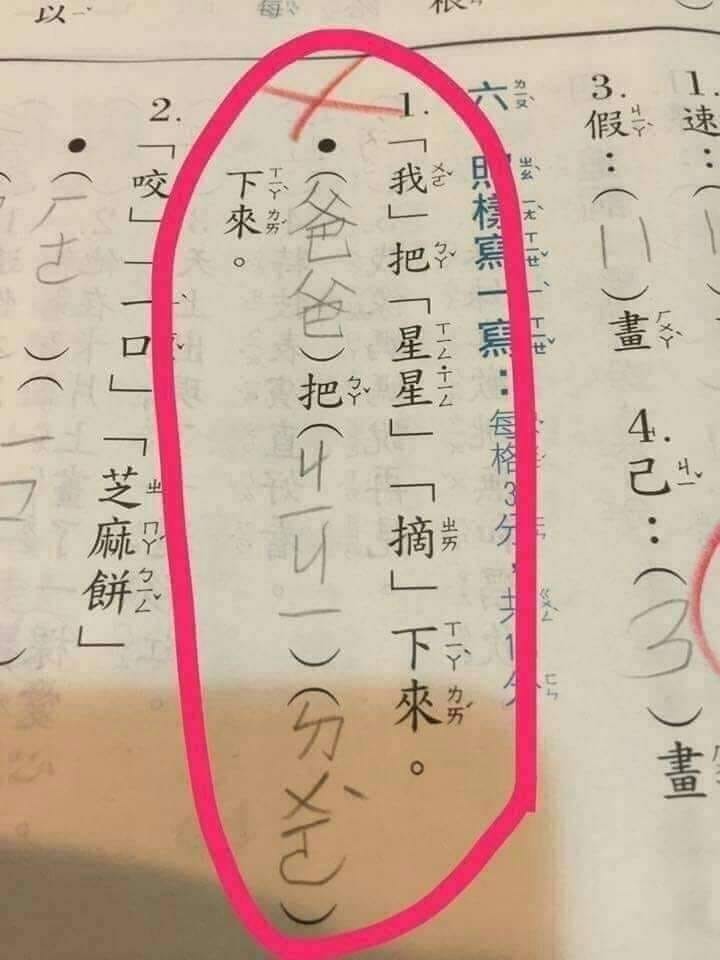 以
1. 速：（
3. 假：（11）畫
4. 己：（3）畫
六 照樣寫一寫：每格3分，共1 分
1.「我」把「星星」「摘」下來。
●（爸爸）把（ㄐㄧㄐㄧ）（ㄉㄨㄛˋ）
下來。
2.「咬」「一口」「芝麻餅」
●（ㄏㄜ）（一口